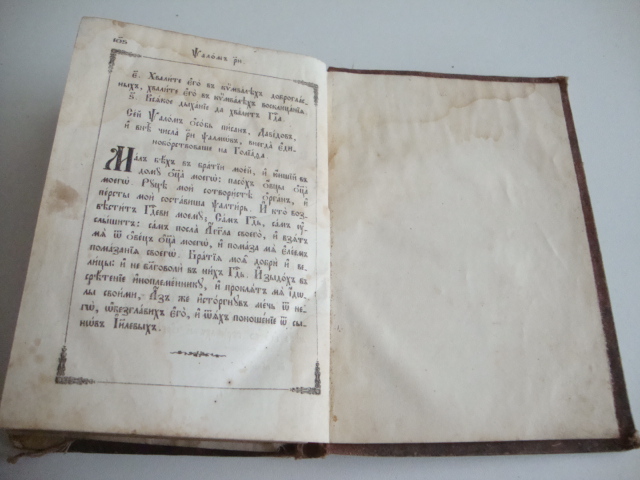 Ѱаломъ рн҃.
є҃. Хвалите єго̀ въ кѷмвалѣхъ доброглас-
ныхъ, хвалите єго̀ въ кѷмвалѣхъ восклицанїѧ.
ѕ҃. Всѧкое дыханїе да хвалитъ Гдⷭ҇а.
Сей ѱаломъ ѡсобь писанъ, Давїдовъ,
и внѣ числа рн҃ ѱалмѡвъ, внегда єди-
ноборствоваше на Голїаѳа.
Малъ бѣхъ въ братїи моей, и юнш҃ій въ
дому ѻц҃а моегѡ̀: пасохъ ѻвцы ѻц҃а
моегѡ̀. Руцѣ мои сотвористѣ ѻрганъ, и
персты мои составиша ѱалтирь. И кто воз-
вѣститъ Гдⷭ҇еви моему; Самъ Гдⷭ҇ь, самъ ѹ-
слышитъ: самъ посла Аг҃гла своего, и взѧтъ
мѧ ѿ ѻвецъ ѻц҃а моегѡ̀, и помаза мѧ єлеемъ
помазанїѧ своегѡ̀. Братїѧ моѧ добри и ве-
лицы: и не бл҃говоли въ нихъ Гдⷭ҇ь. Изыдохъ въ
срѣтенїе иноплеменнику, и проклѧтъ мѧ їдѡ-
лы своими. Азъ же исторгнувъ мечь ѿ не-
гѡ̀, ѡбезглавихъ єго̀, и ѿѧхъ поношенїе ѿ сы-
нѡвъ Іи҃левыхъ.